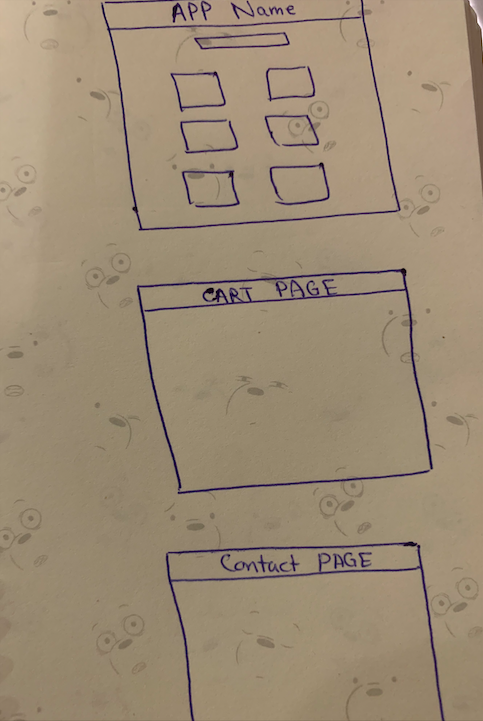 APP Name
CART PAGE
Contact PAGE